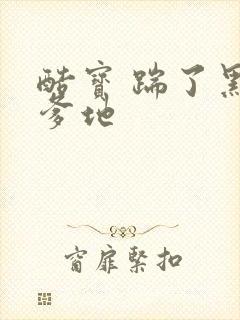 酷寶踹了黑
爹地
窗扉緊扣